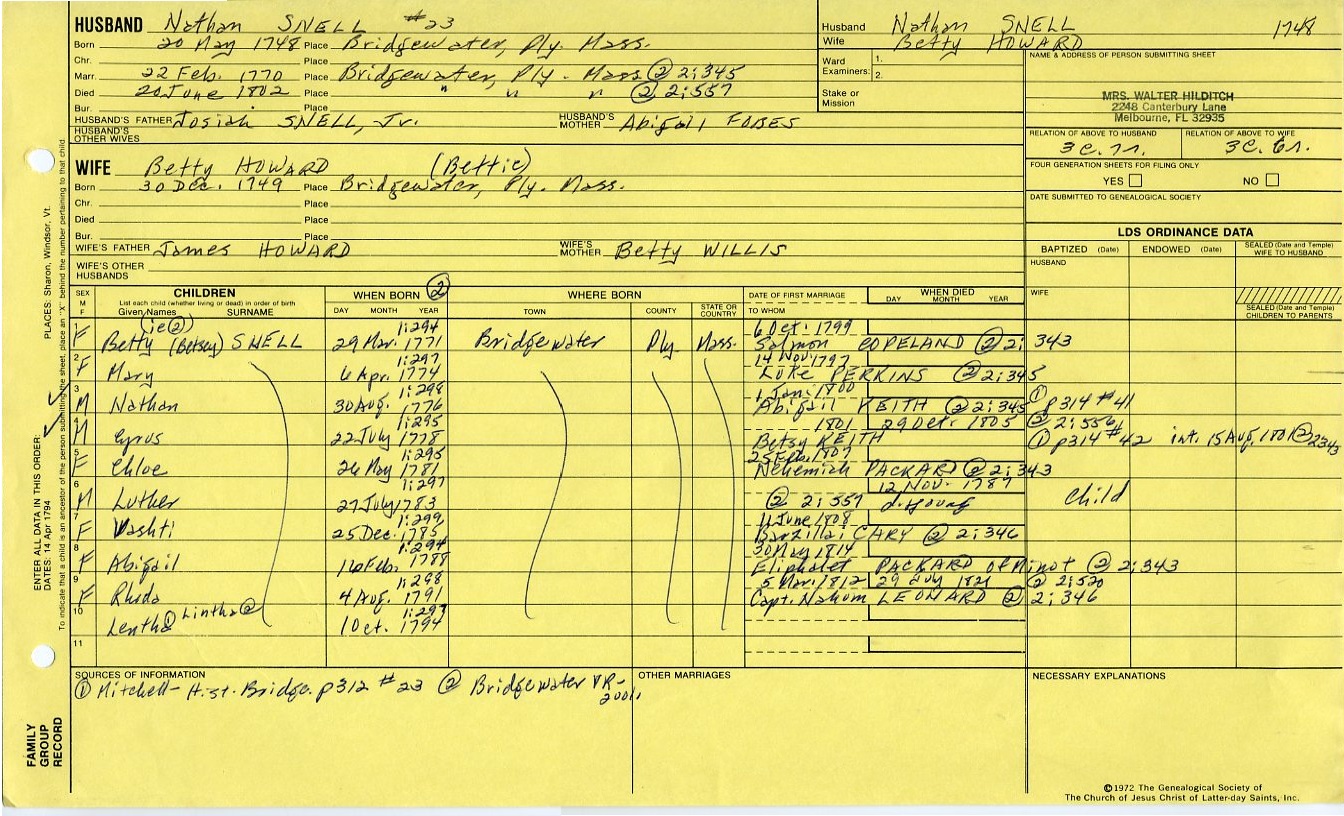 HUSBAND Nathan SNELL #23
Born 20 May 1748 Place Bridgewater, Ply. Mass.
Chr. Place
Marr. 22 Feb. 1770 Place Bridgewater, Ply. Mass ② 2:345
Died 20 June 1802 Place " " " ② 2:557
Bur. Place
HUSBAND'S FATHER Josiah SNELL, Jr. HUSBAND'S MOTHER Abigail FOBES
HUSBAND'S OTHER WIVES
WIFE Betty HOWARD (Bettie)
Born 30 Dec. 1749 Place Bridgewater, Ply. Mass.
Chr. Place
Died Place
Bur. Place
WIFE'S FATHER James HOWARD WIFE'S MOTHER Betty WILLIS
WIFE'S OTHER HUSBANDS
Husband Nathan SNELL 1748
Wife Betty HOWARD
Ward Examiners: 1. 2.
Stake or Mission
NAME & ADDRESS OF PERSON SUBMITTING SHEET
MRS. WALTER HILDITCH
2248 Canterbury Lane
Melbourne, FL 32935
RELATION OF ABOVE TO HUSBAND RELATION OF ABOVE TO WIFE
3C. 7r. 3C. 6r.
FOUR GENERATION SHEETS FOR FILING ONLY
YES NO
DATE SUBMITTED TO GENEALOGICAL SOCIETY
LDS ORDINANCE DATA
BAPTIZED (Date) ENDOWED (Date) SEALED (Date and Temple) WIFE TO HUSBAND
HUSBAND
WIFE
SEALED (Date and Temple) CHILDREN TO PARENTS
SEX M F CHILDREN WHEN BORN ② WHERE BORN DATE OF FIRST MARRIAGE WHEN DIED
List each child (whether living or dead) in order of birth
Given Names SURNAME DAY MONTH YEAR TOWN COUNTY STATE OR COUNTRY TO WHOM DAY MONTH YEAR
(ie②) 1:294 6 Oct. 1799
F Betty (Betsey) SNELL 29 Mar. 1771 Bridgewater Ply. Mass. Salmon COPELAND ② 2: 343
2 1:297 14 Nov 1797
F Mary 6 Apr. 1774 Luke PERKINS ② 2:345
3 1:298 1 Jan. 1800
M Nathan 30 Aug. 1776 Abigail KEITH ② 2:345 ① p314 #41
4 1:295 1801 29 Oct. 1805 ② 2:556
M Cyrus 22 July 1778 Betsy KEITH ① p314 #42 int. 15 Aug. 1801 ② 2343
5 1:295 25 Feb. 1807
F Chloe 26 May 1781 Nehemiah PACKARD ② 2:343
6 1:297 12 Nov. 1787
M Luther 27 July 1783 ② 2:557 d. young Child
7 1:299 11 June 1808
F Vashti 25 Dec. 1785 Barzillai CARY ② 2:346
8 1:294 30 May 1814
F Abigail 16 Feb. 1788 Eliphalet PACKARD of Minot ② 2:343
9 1:298 5 Mar. 1812 29 July 1821 ② 2:520
F Rhoda 4 Aug. 1791 Capt. Nahum LEONARD ② 2:346
10 1:297
Lentha ① Lintha ② 1 Oct. 1794
11
SOURCES OF INFORMATION OTHER MARRIAGES NECESSARY EXPLANATIONS
① Mitchell - Hist. Bridge. p312 #23 ② Bridgewater VR-
©1972 The Genealogical Society of
The Church of Jesus Christ of Latter-day Saints, Inc.
FAMILY GROUP RECORD
ENTER ALL DATA IN THIS ORDER:
DATES: 14 Apr 1794 PLACES: Sharon, Windsor, Vt.
To indicate that a child is an ancestor of the person submitting the sheet, place an "X" behind the number pertaining to that child